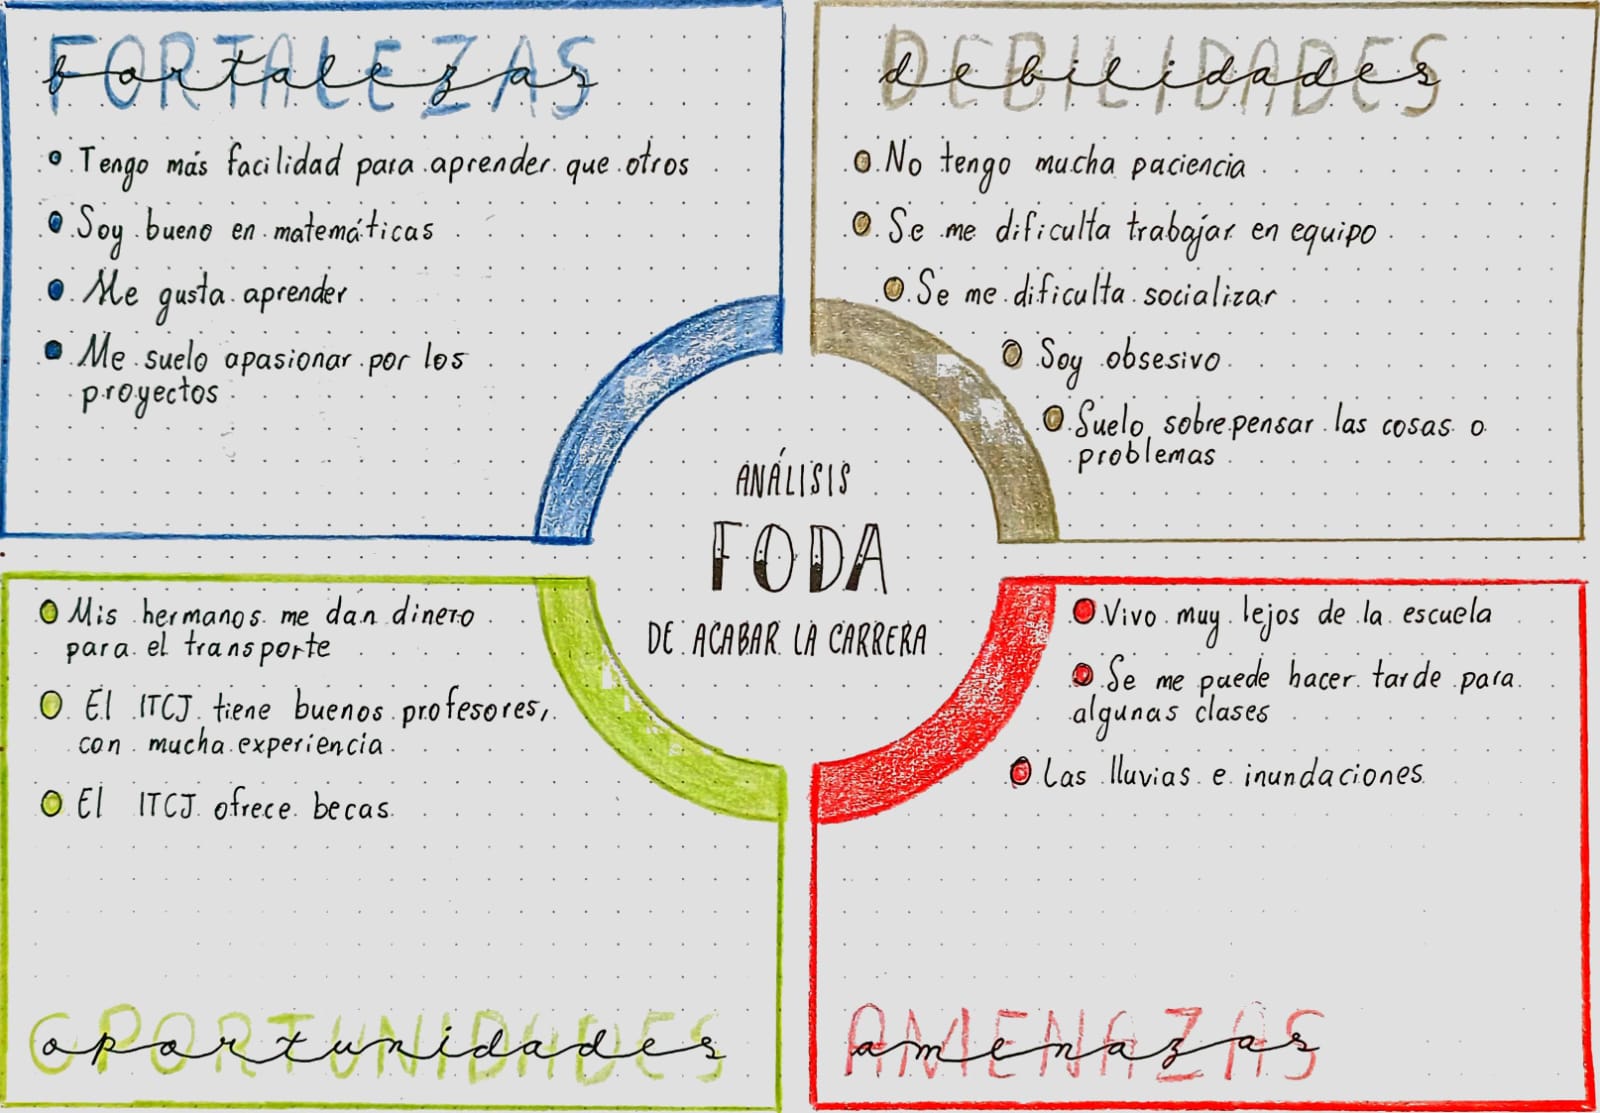 FORTALEZAS
fortalezas
Tengo más facilidad para aprender que otros
Soy bueno en matemáticas
Me gusta aprender
Me suelo apasionar por los
proyectos
DEBILIDADES
debilidades
No tengo mucha paciencia
Se me dificulta trabajar en equipo
Se me dificulta socializar
Soy obsesivo
Suelo sobrepensar las cosas o
problemas
ANÁLISIS
FODA
DE ACABAR LA CARRERA
Mis hermanos me dan dinero
para el transporte
El ITCJ tiene buenos profesores,
con mucha experiencia
El ITCJ ofrece becas
OPORTUNIDADES
oportunidades
Vivo muy lejos de la escuela
Se me puede hacer tarde para
algunas clases
Las lluvias e inundaciones
AMENAZAS
amenazas